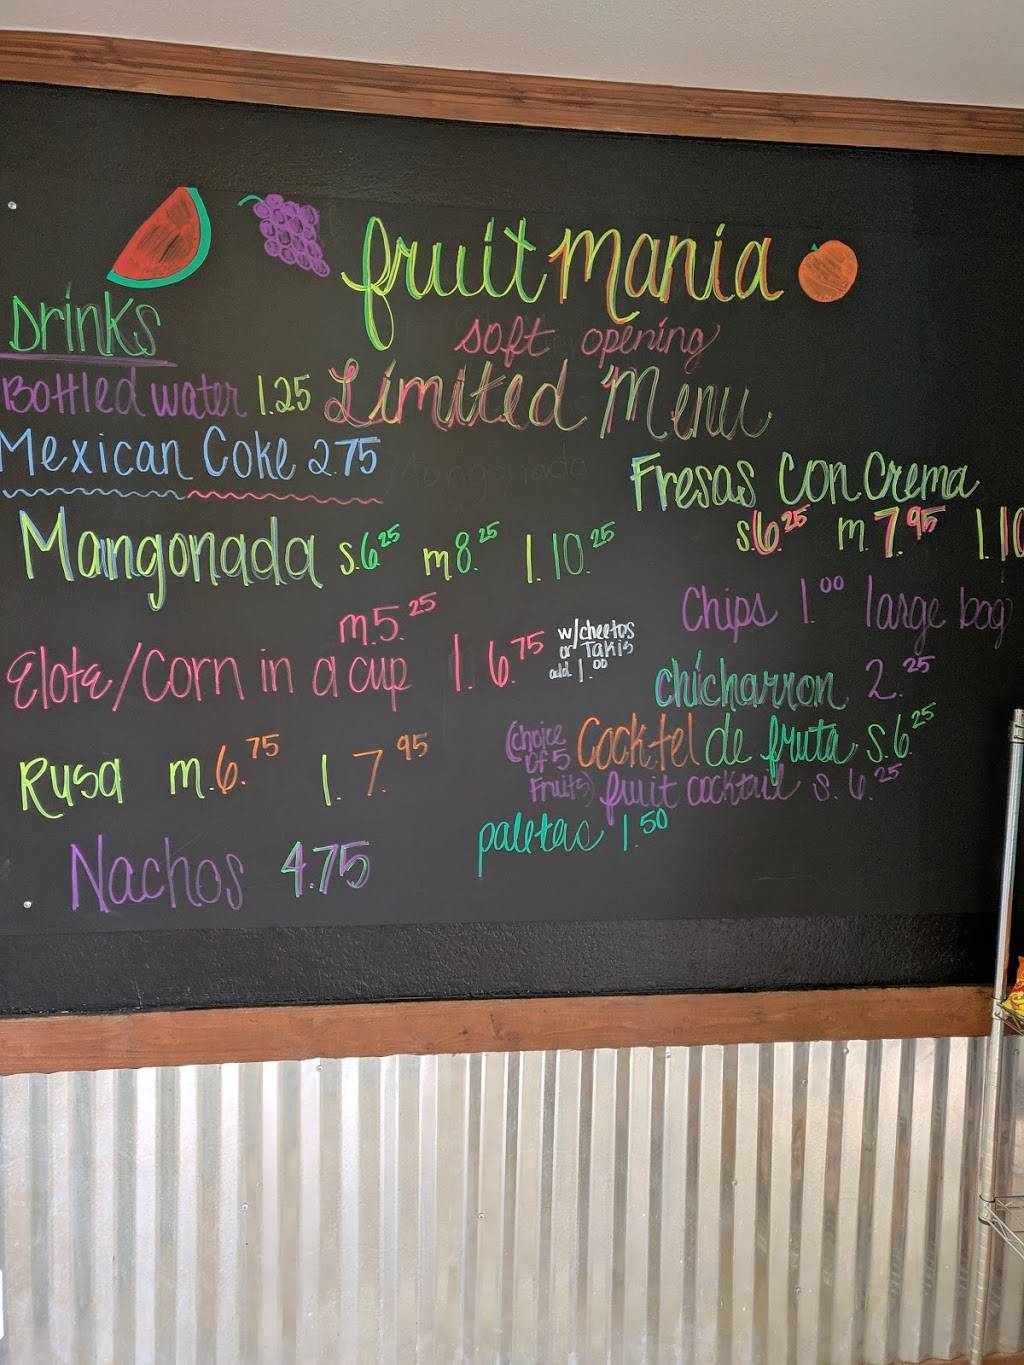 fruitmania
soft opening
Limited Menu
Drinks
Bottled water 1.25
Mexican Coke 2.75
Mangonada s.6.25 m8.25 l.10.25
m.5.25
Elote/Corn in a cup l.6.75 w/cheetos
or Takis
add 1.00
Rusa m.6.75 l.7.95
Nachos 4.75
Fresas Con Crema
s.6.25 m.7.95 l.10
Chips 1.00 large bag
chicharron 2.25
(choice of 5 Fruits) Cocktel de fruta s.6.25
fruit cocktail s.6.25
paletas 1.50